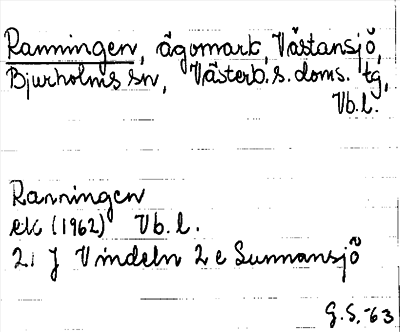 Ranningen, ägomark, Västansjö,
Bjurholms sn, Västerb. s. doms. tg,
Vb. l.
Ranningen
ek (1962) Vb. l.
21 J Vindeln 2 e Sunnansjö
G. S. -63